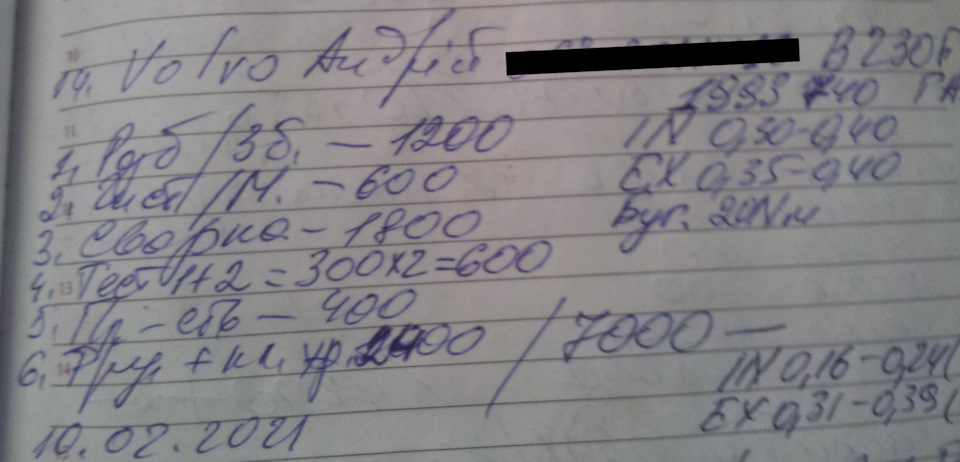 14. Volvo Андрій B230F
1993 740 ГА
1. Розб/Зб. – 1200
IN 0,30-0,40
2. Чист/М. – 600
EX 0,35-0,40
3. Сварка – 1800
Буг. 20Nм
4. Тест 1+2 = 300х2=600
5. Пр-сть – 400
6. + кл. 2400 / 7000 –
IN 0,16-0,24(
EX 0,31-0,39(
10.02.2021